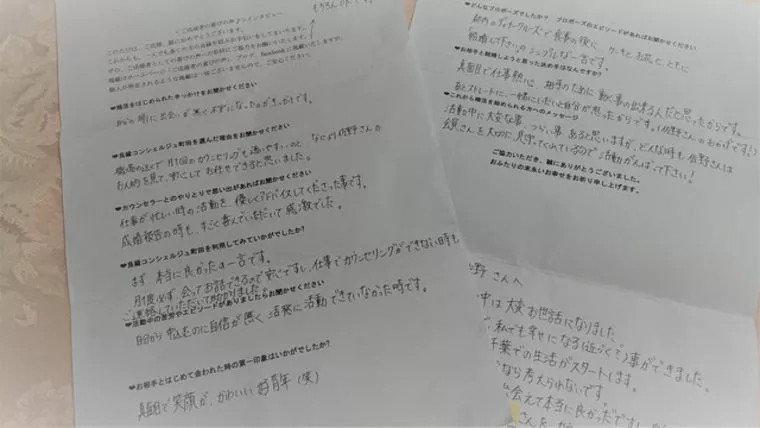 もちろんOKです。
＜ご成婚者の喜びの声♪インタビュー＞
このたびは、ご成婚、誠におめでとうございます。
❤婚活をはじめられたきっかけをお聞かせください
自分の周りに出会いが無く不安になったのがきっかけです。
❤良縁コンシェルジュ町田を選んだ理由をお聞かせください
職場の近くで月1回のカウンセリングも通いやすいのと、なにより佐野さんの
お人柄を見て、安心してお任せできると思いました。
❤カウンセラーとのやりとりで思い出があればお聞かせください
仕事が忙しい時の活動を、優しくアドバイスしてくださった事です。
成婚報告の時も、すごく喜んでいただいて感激でした。
❤良縁コンシェルジュ町田を利用してみていかがでしたか?
まず、本当に良かったの一言です。
月1度必ず、会ってお話できるので安心ですし、仕事でカウンセリングができない時も
ご連絡していただいて助かりました。
❤活動中の苦労やエピソードがありましたらお聞かせください
自分から申込むのに自信が無く、活発に活動できていなかった時です。
❤お相手とはじめて会われた時の第一印象はいかがでしたか?
真面目で笑顔が、かわいい好青年(笑)
❤どんなプロポーズでしたか? プロポーズのエピソードがあればお聞かせください
船内のディナークルーズで食事の後に、ケーキとお花と、ともに
結婚して下さいのシンプルな一言です。
❤お相手と結婚しようと思った決め手はなんですか?
真面目で仕事熱心、相手のために動く事の出来る人だと思ったからです。
あとストレートに、一緒にいたいと自分が思ったからです。(佐野さんのおかげです!)
❤これから婚活を始められる方へのメッセージ
活動中に大変な事、つらい事あると思いますが、どんな時も佐野さんは
会員さんを大切に見守ってくれているので活動がんばって下さい!
ご協力いただき、誠にありがとうございました。
おふたりの末永いお幸せをお祈り申し上げます。
野さんへ
中は大変お世話になりました。
私でも幸せになる(近づく?)事ができました。
千葉での生活がスタートします。
なら考えられないです。
会えて本当に良かったです